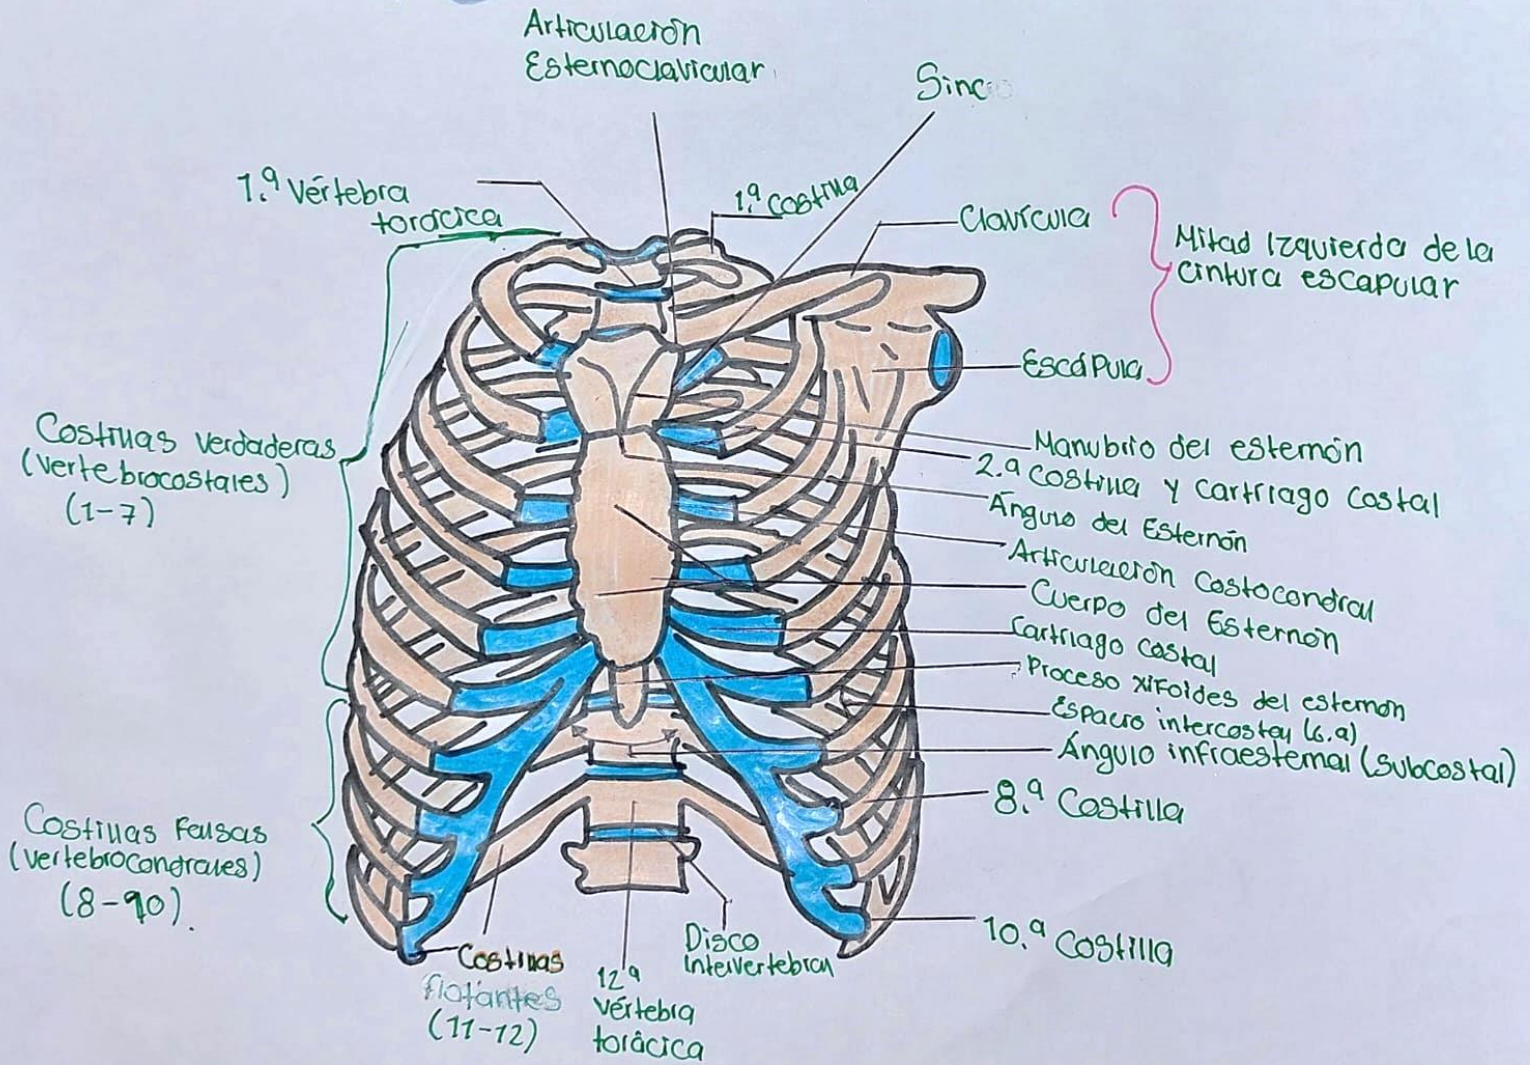 Articulación
Esternoclavicular
Sinc
1.ª Vértebra
torácica
1.ª Costilla
Clavícula
Mitad Izquierda de la
cintura escapular
Escápula
Costillas verdaderas
(vertebrocostales)
(1-7)
Manubrio del esternón
2.ª Costilla y Cartílago Costal
Ángulo del Esternón
Articulación Costocondral
Cuerpo del Esternón
Cartílago costal
Proceso xifoides del esternón
Espacio intercostal (6.a)
Ángulo infraesternal (Subcostal)
8.ª Costilla
Costillas Falsas
(vertebrocondrales)
(8-10).
10.ª Costilla
Costillas
flotantes
(11-12)
12ª
vértebra
torácica
Disco
Intervertebral